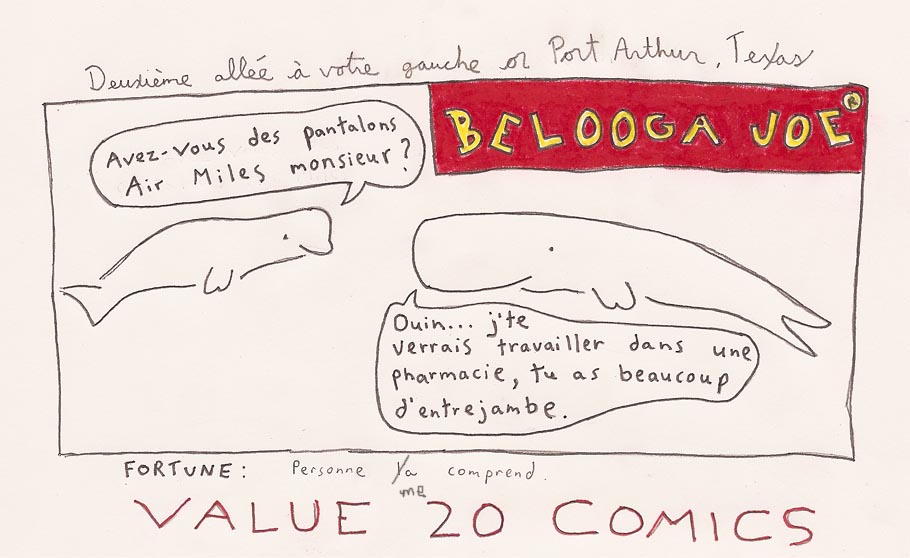 Deuxième allée à votre gauche or Port Arthur, Texas
BELOOGA JOE ®
Avez-vous des pantalons
Air Miles monsieur?
Ouin... j'te
verrais travailler dans une
pharmacie, tu as beaucoup
d'entrejambe.
FORTUNE: Personne comprend.
me
VALUE 20 COMICS